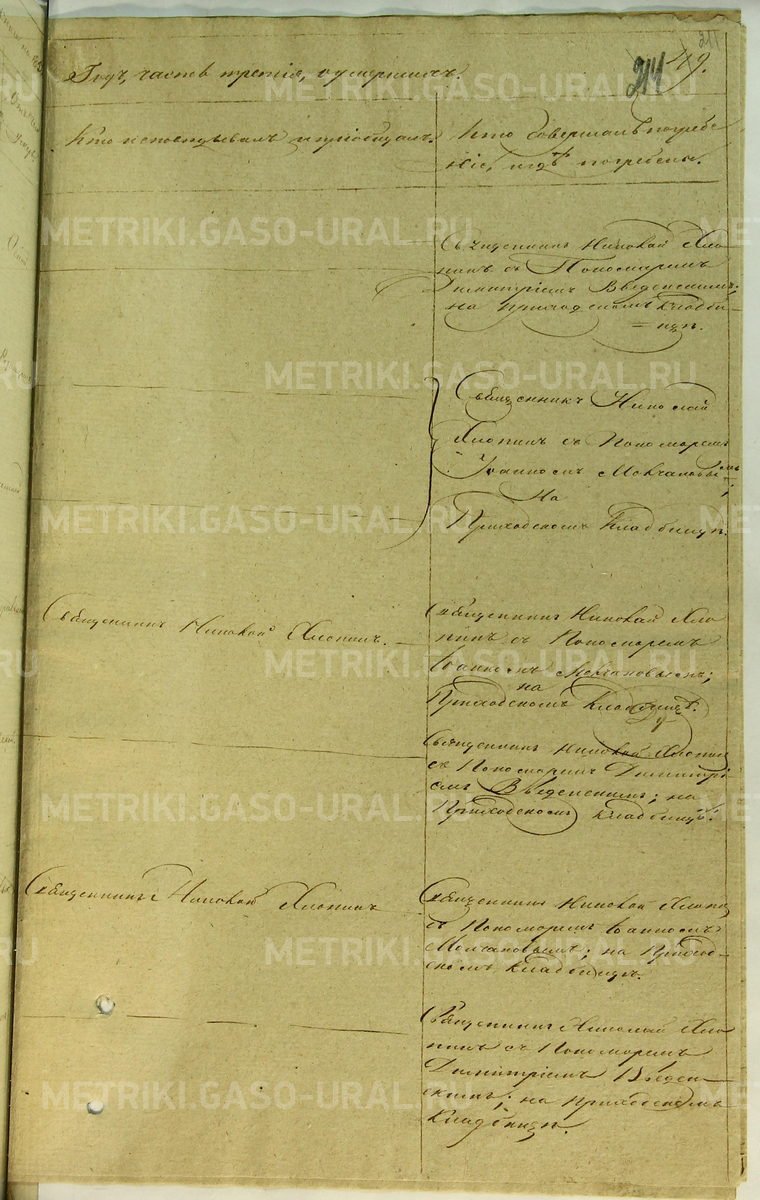 Годъ, часть третія, о умершихъ.
214 49.
Кто исповѣдывалъ и пріобщалъ.
Кто совершалъ погребе-
ніе, и гдѣ погребены.
Священникъ Николай Хло-
пинъ съ Пономаремъ
Димитріемъ Введенскимъ;
на приходскомъ кладби-
щѣ.
Священникъ Николай
Хлопинъ съ Пономаремъ
Іоанномъ Молчановымъ;
На
Приходскомъ Кладбищѣ.
Священникъ Николай Хлопинъ.
Священникъ Николай Хло-
пинъ съ Пономаремъ
Іоанномъ Молчановымъ;
на
Приходскомъ Кладбищѣ.
Священникъ Николай Хлопинъ
съ Пономаремъ Димитрі-
емъ Введенскимъ; на
Приходскомъ кладбищѣ.
Священникъ Николай Хлопинъ
Священникъ Николай Хлопинъ
съ Пономаремъ Іоанномъ
Молчановымъ; на Приход-
скомъ кладбищѣ.
Священникъ Николай Хло-
пинъ съ Пономаремъ
Димитріемъ Введен-
скимъ; на приходскомъ
Кладбищѣ.
METRIKI.GASO-URAL.RU